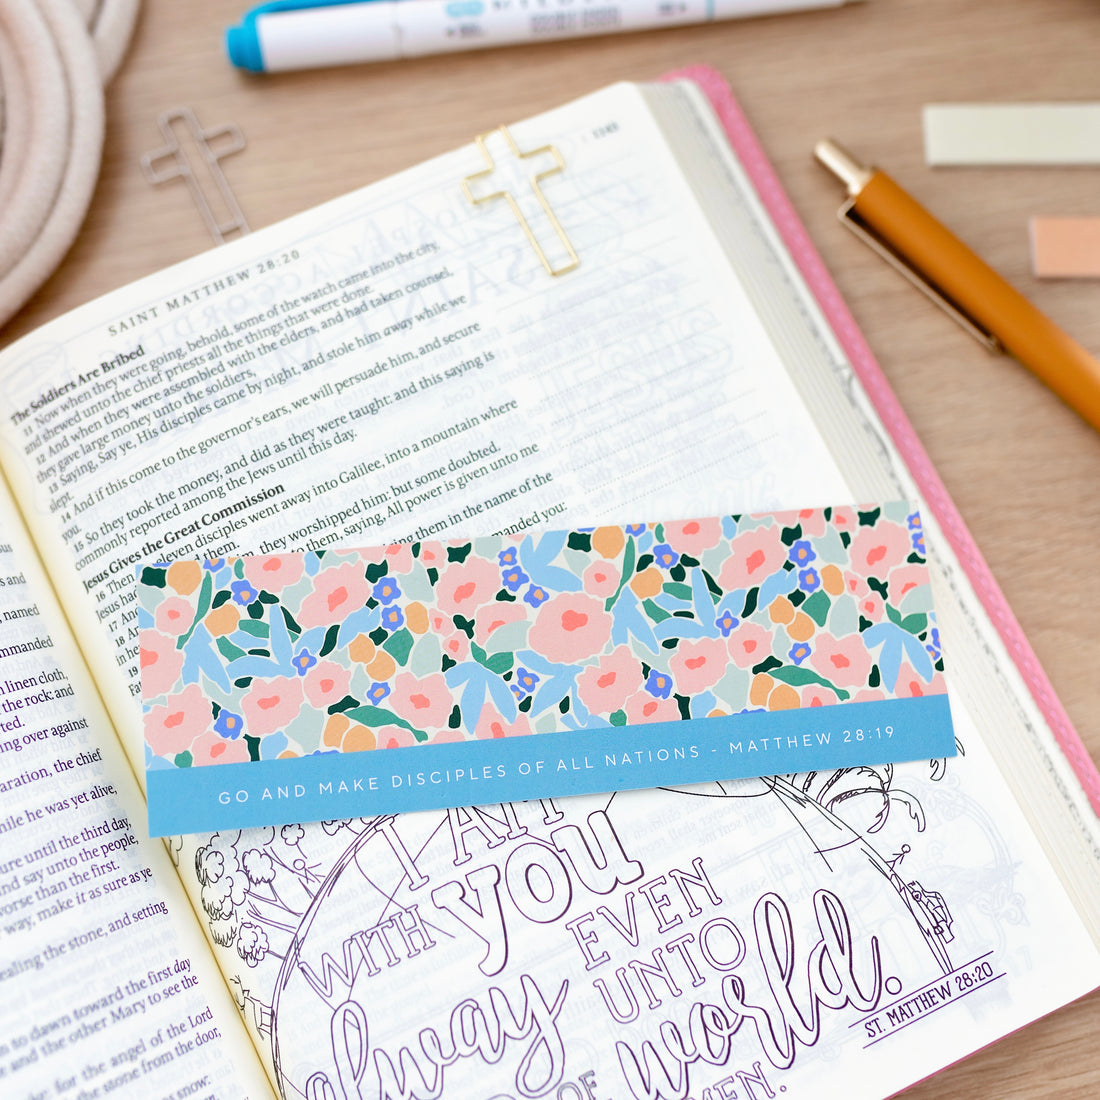 SAINT MATTHEW 28:20
1343
The Soldiers Are Bribed
11 Now when they were going, behold, some of the watch came into the city,
and shewed unto the chief priests all the things that were done.
12 And when they were assembled with the elders, and had taken counsel,
they gave large money unto the soldiers,
13 Saying, Say ye, His disciples came by night, and stole him away while we
slept.
14 And if this come to the governor's ears, we will persuade him, and secure
you.
15 So they took the money, and did as they were taught: and this saying is
commonly reported among the Jews until this day.
Jesus Gives the Great Commission
16 Then eleven disciples went away into Galilee, into a mountain where
Jesus had them.
17 And him, they worshipped him: but some doubted.
18 And to them, saying, All power is given unto me
in he
19 them in the name of the
20 manded you:
named
mmanded
linen cloth,
the rock: and
ted.
ing over against
aration, the chief
hile he was yet alive,
ure until the third day,
nd say unto the people,
worse than the first.
way, make it as sure as ye
ealing the stone, and setting
n so dawn toward the first day
e and the other Mary to see the
for the angel of the Lord
the stone from the door,
snow:
GO AND MAKE DISCIPLES OF ALL NATIONS - MATTHEW 28:19
I AM
WITH you
alway EVEN
UNTO
OF world.
MEN.
ST. MATTHEW 28:20